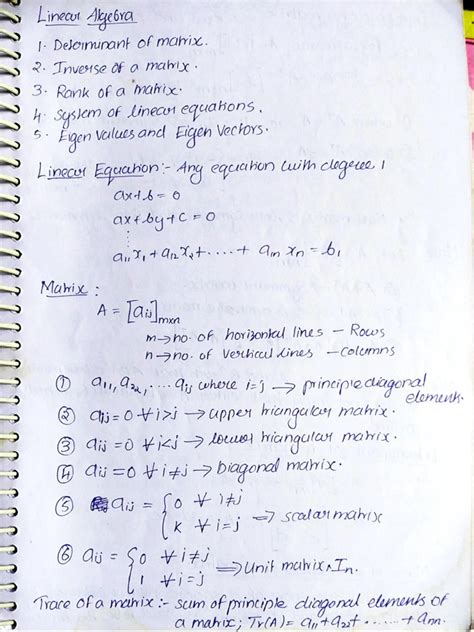 Linear Algebra
1. Determinant of matrix.
2. Inverse of a matrix.
3. Rank of a matrix.
4. System of linear equations.
5. Eigen values and Eigen vectors.
Linear Equation:- Any equation with degree 1
ax+b=0
ax+by+c=0
⋮
a₁₁x₁+a₁₂x₂+.....+a₁ₙxₙ=b₁
Matrix:
A=[aᵢⱼ]ₘₓₙ
m→no. of horizontal lines – Rows
n→no. of vertical lines – columns
① a₁₁, a₂₂, ... aᵢⱼ where i=j → principle diagonal
elements.
② aᵢⱼ=0 ∀ i>j → upper triangular matrix.
③ aᵢⱼ=0 ∀ i<j → lower triangular matrix.
④ aᵢⱼ=0 ∀ i≠j → Diagonal matrix.
⑤ aᵢⱼ = {0 ∀ i≠j
k ∀ i=j ⇒ scalar matrix
⑥ aᵢⱼ = {0 ∀ i≠j
1 ∀ i=j ⇒ Unit matrix, Iₙ.
Trace of a matrix:- sum of principle diagonal elements of
a matrix; Tr(A)= a₁₁+a₂₂+.....+aₙₙ.